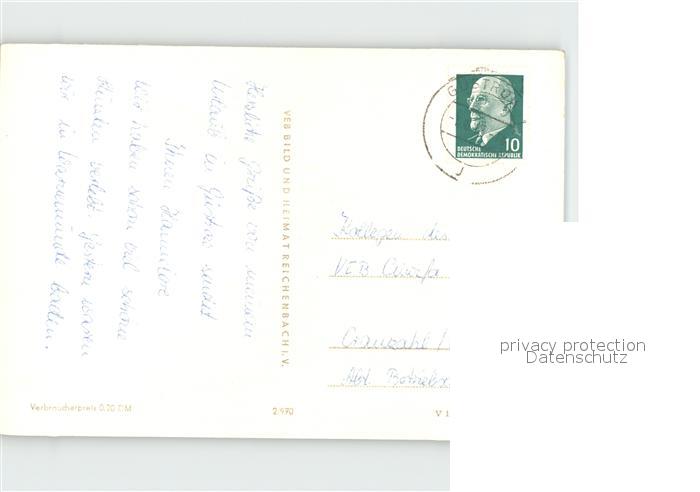 Herzliche Grüße von meinem
Urlaub in Güstrow sendet
Ihnen Hannelore
Wir haben schon viel schöne
Stunden verlebt. Gestern waren
wir in Warnemünde baden.
VEB BILD UND HEIMAT REICHENBACH I. V.
10
DEUTSCHE
DEMOKRATISCHE REPUBLIK
Kollegen des
VEB
Cranzahl /
Abt. Betriebs
Verbraucherpreis 0,20 DM
2/970
V 1
privacy protection
Datenschutz